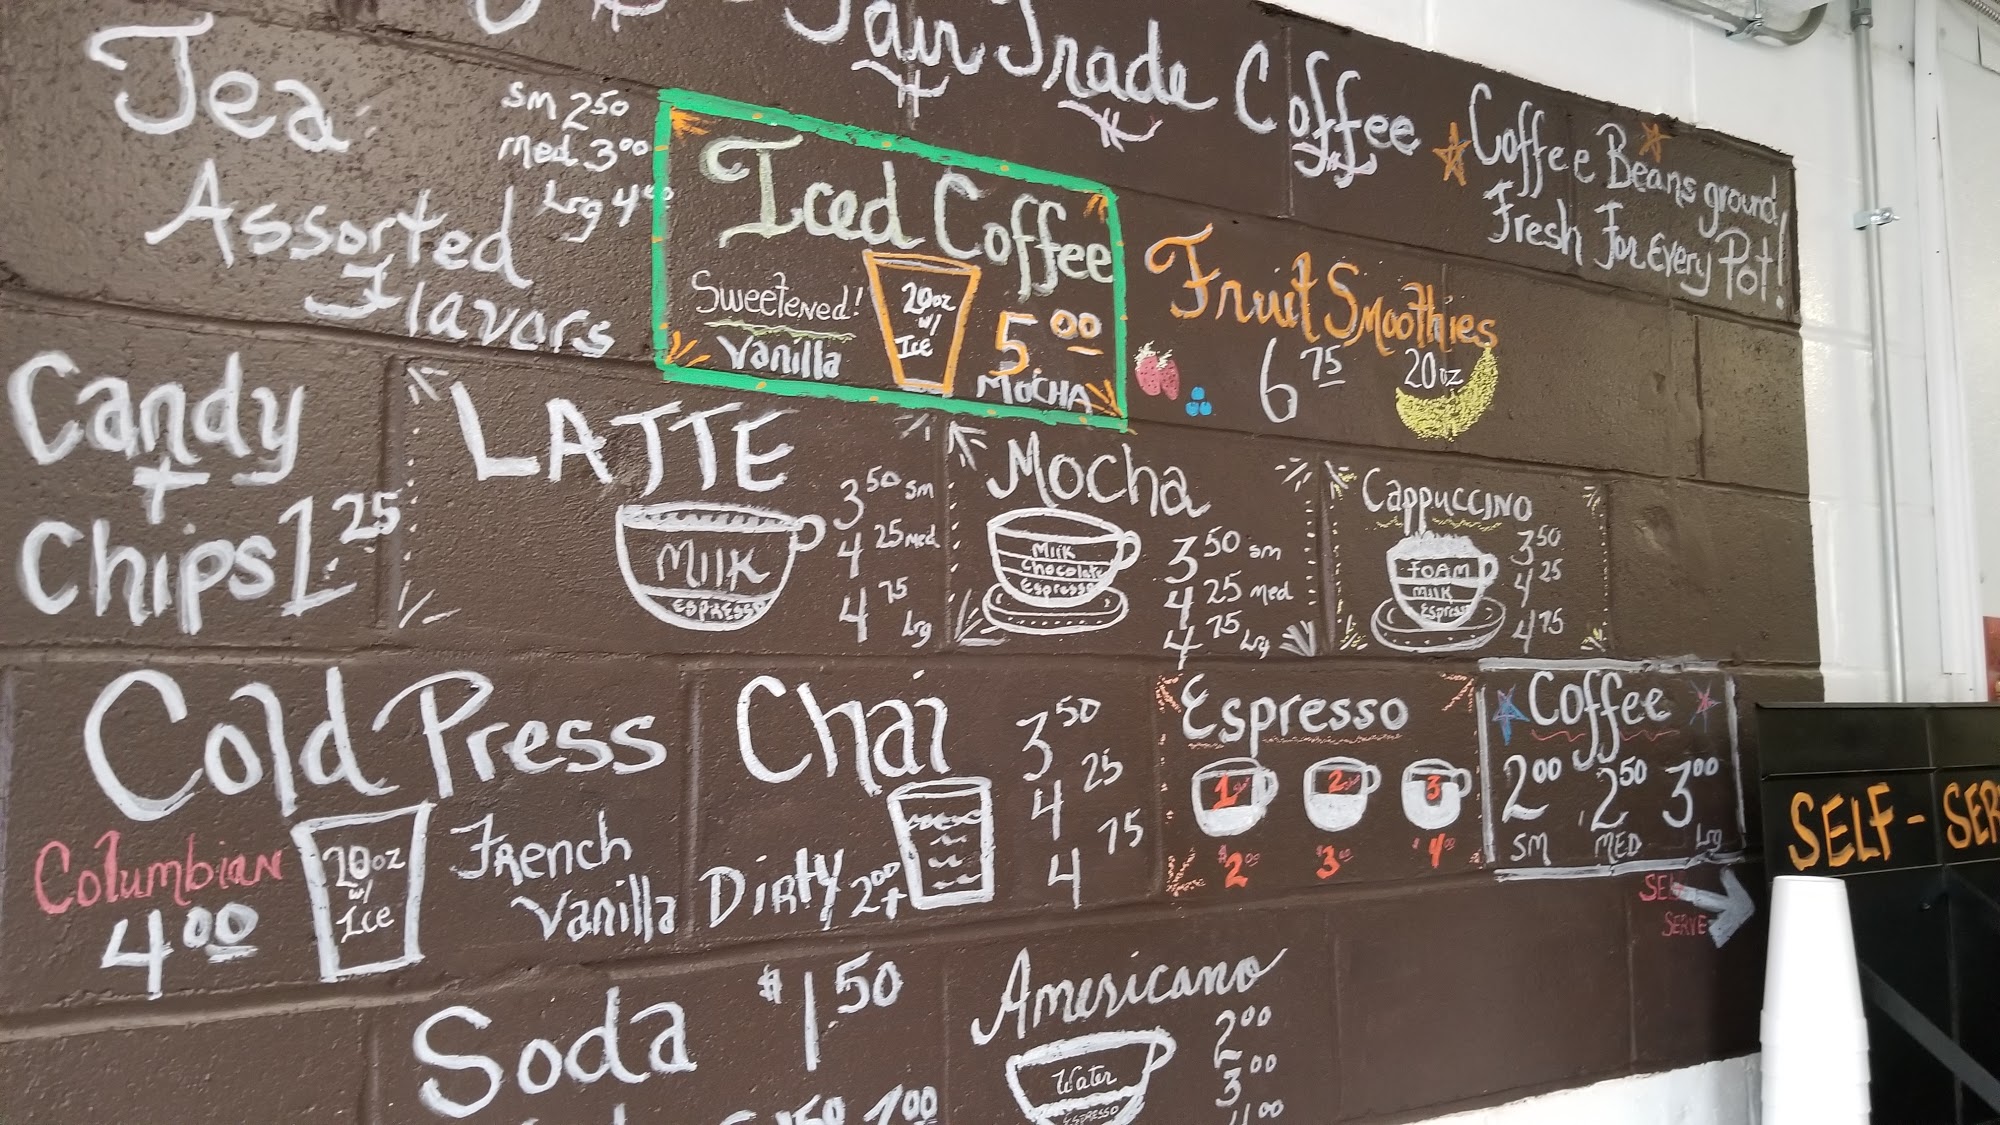 Fair Trade Coffee
Coffee Beans ground
Fresh For Every Pot!
Tea
sm 2.50
med 3.00
Lrg 4.00
Assorted
Flavors
Iced Coffee
Sweetened!
Vanilla
20oz
w/
Ice
5.00
MOCHA
Fruit Smoothies
6.75
20oz
Candy
+
Chips 1.25
LATTE
MILK
ESPRESSO
3.50 sm
4.25 med
4.75 Lrg
Mocha
Milk
Chocolate
Espresso
3.50 sm
4.25 med
4.75 Lrg
Cappuccino
FOAM
MILK
Espresso
3.50
4.25
4.75
Cold Press
Columbian
4.00
20oz
w/
Ice
French
Vanilla
Chai
3.50
4.25
4.75
Dirty 2.00+
Espresso
1 2 3
$2.00 $3.00 $4.00
Coffee
2.00 2.50 3.00
SM MED Lrg
SELF
SERVE
SELF-SER
Soda $1.50
Americano
Water
ESPRESSO
2.00
3.00